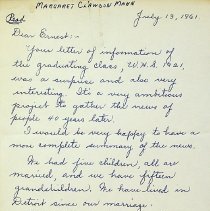 MARGARET CLAWSON MANN
Read
July 13, 1961.
Dear Ernest:-
Your letter of information of
the graduating class, W.H.S. 1921,
was a surprise and also very
interesting. It's a very ambitious
project to gather the news of
people 40 years later.
I would be very happy to have a
more complete summary of the news.
We had five children, all are
married, and we have fifteen
grandchildren. We have lived in
Detroit since our marriage.